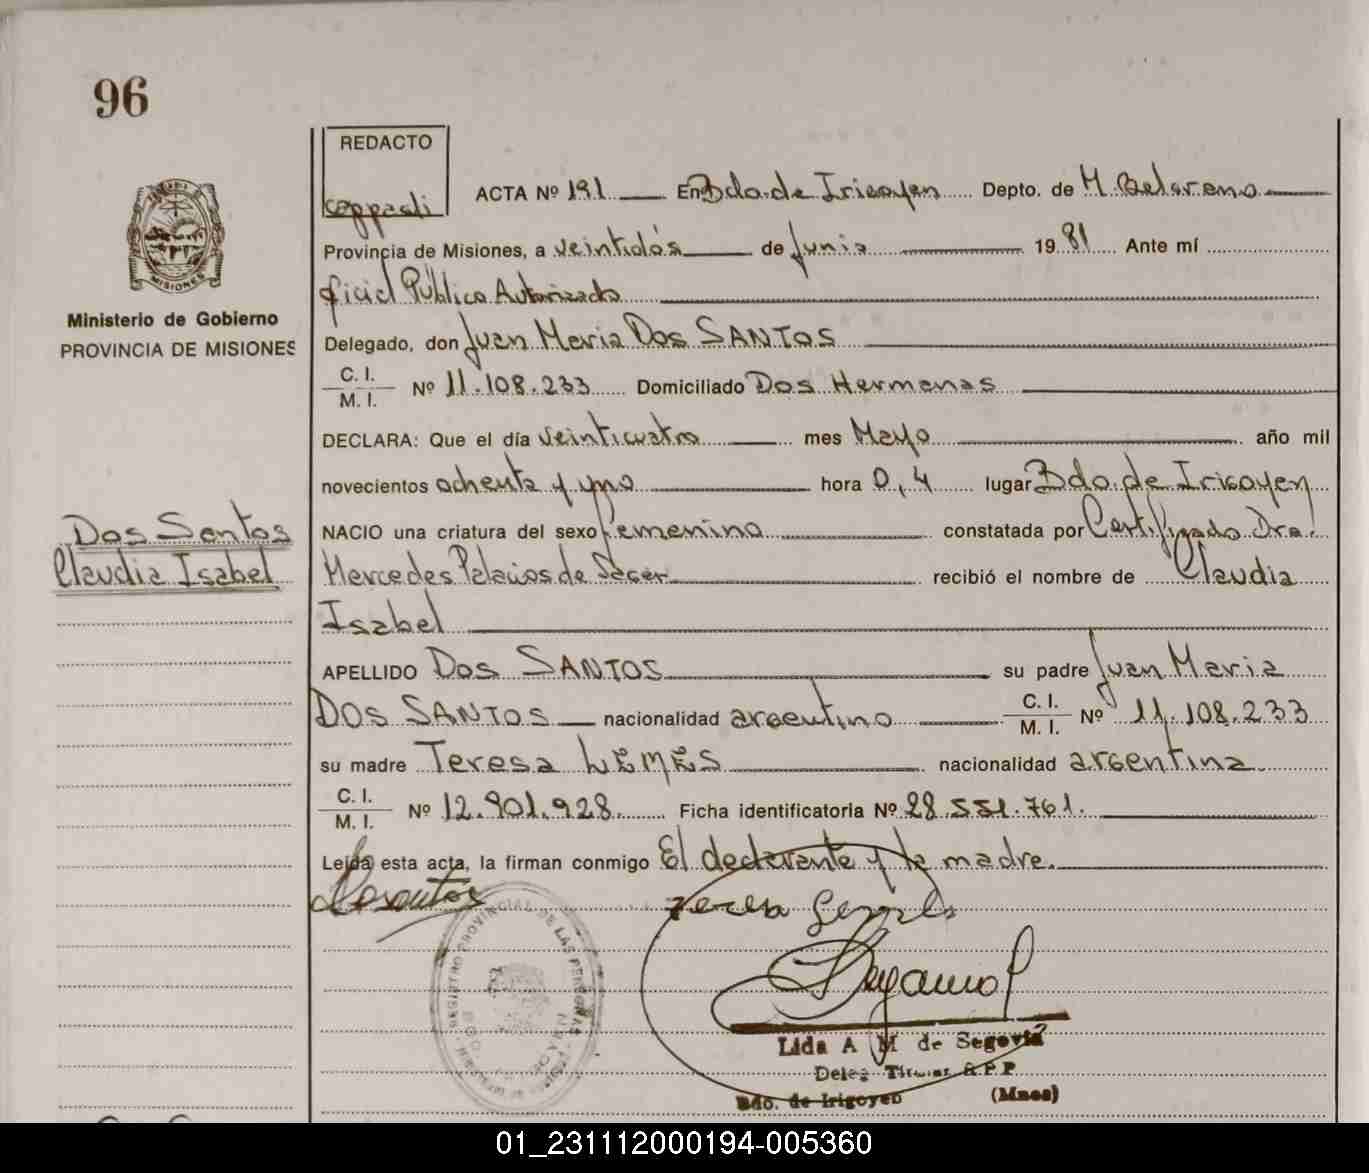 96
REDACTO
ceppadi
ACTA Nº 191 En Bdo. de Irigoyen Depto. de M. Belgrano
Provincia de Misiones, a veintidós de Junio 19 81 Ante mí
oficial Público Autorizado
MISIONES
Ministerio de Gobierno
PROVINCIA DE MISIONES
Delegado, don Juan Maria Dos SANTOS
C. I.
M. I. Nº 11.108.233 Domiciliado Dos Hermanas
DECLARA: Que el día veinticuatro mes Mayo año mil
novecientos ochenta y uno hora 0,4 lugar Bdo. de Irigoyen
Dos Santos
Claudia Isabel
NACIO una criatura del sexo femenino constatada por Certificado Dra.
Mercedes Palacios de Sacer recibió el nombre de Claudia
Isabel
APELLIDO Dos SANTOS su padre Juan Maria
DOS SANTOS nacionalidad argentino C. I.
M. I. Nº 11.108.233
su madre Teresa LEMES nacionalidad argentina
C. I.
M. I. Nº 12.901.928. Ficha identificatoria Nº 28.551.761.
Leída esta acta, la firman conmigo El declarante y la madre.
Dosantos
teresa
REGISTRO PROVINCIAL DE LAS PERSONAS
Lida A M de Segovia
Deleg Titular R P P
Bdo. de Irigoyen (Mnes)
01_231112000194-005360